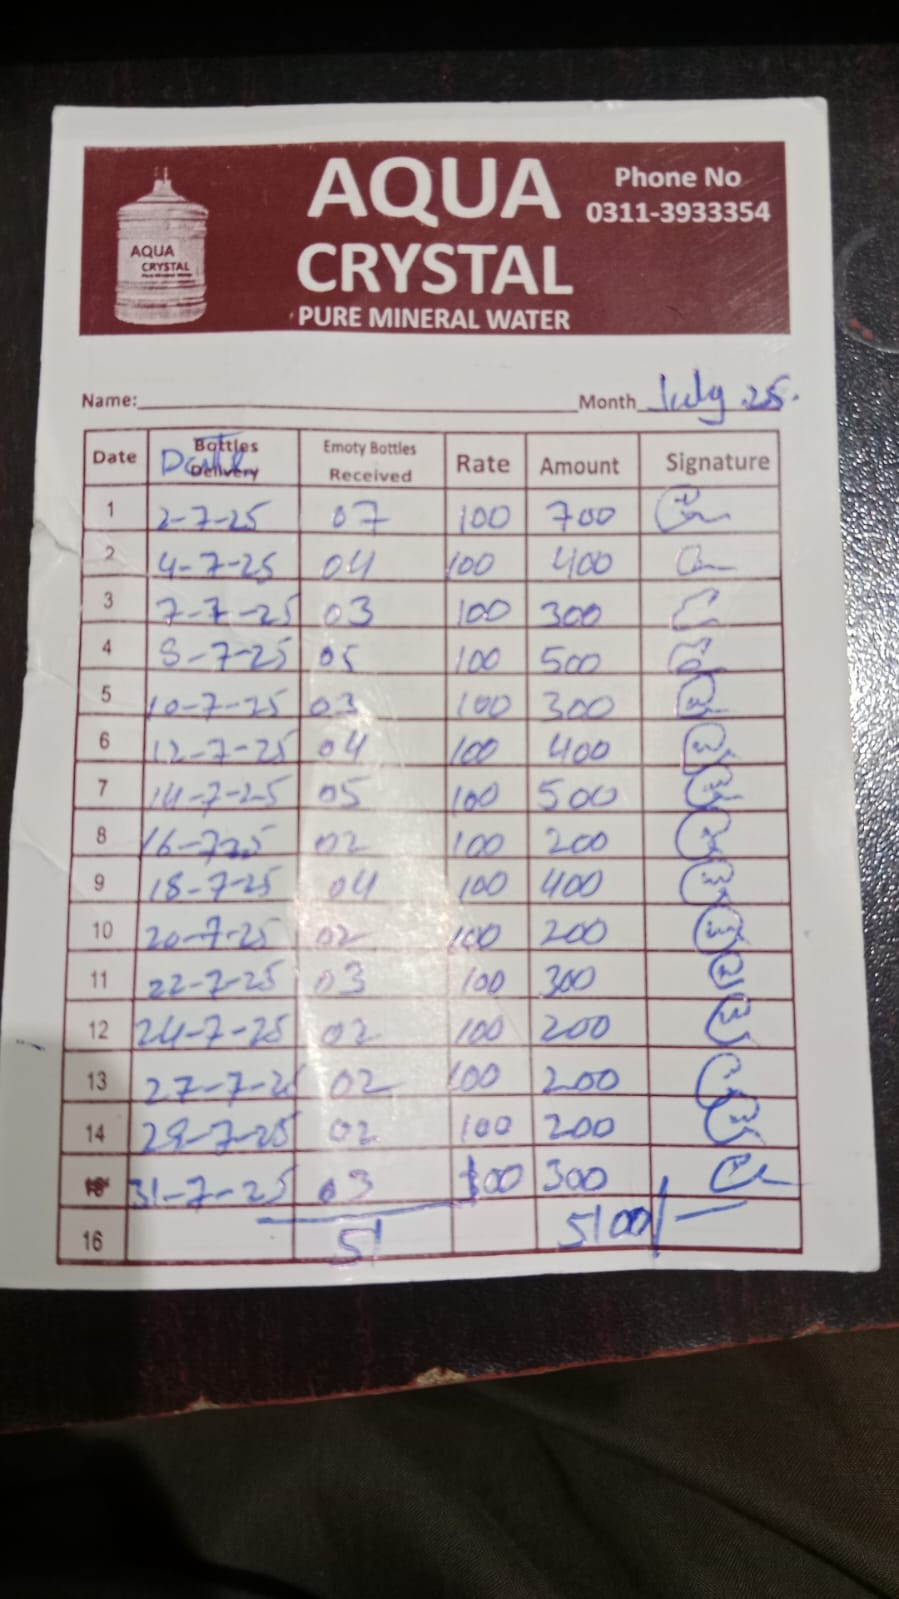 AQUA
CRYSTAL
PURE MINERAL WATER
Phone No
0311-3933354
AQUA
CRYSTAL
Pure Mineral Water
Name: Month July 25.
Date Bottles Delivery Date Emoty Bottles Received Rate Amount Signature
1 2-7-25 07 100 700
2 4-7-25 04 100 400
3 7-7-25 03 100 300
4 8-7-25 05 100 500
5 10-7-25 03 100 300
6 12-7-25 04 100 400
7 14-7-25 05 100 500
8 16-7-25 02 100 200
9 18-7-25 04 100 400
10 20-7-25 02 100 200
11 22-7-25 03 100 300
12 24-7-25 02 100 200
13 27-7-2 02 100 200
14 29-7-25 02 100 200
31-7-25 03 100 300
16 51 5100/